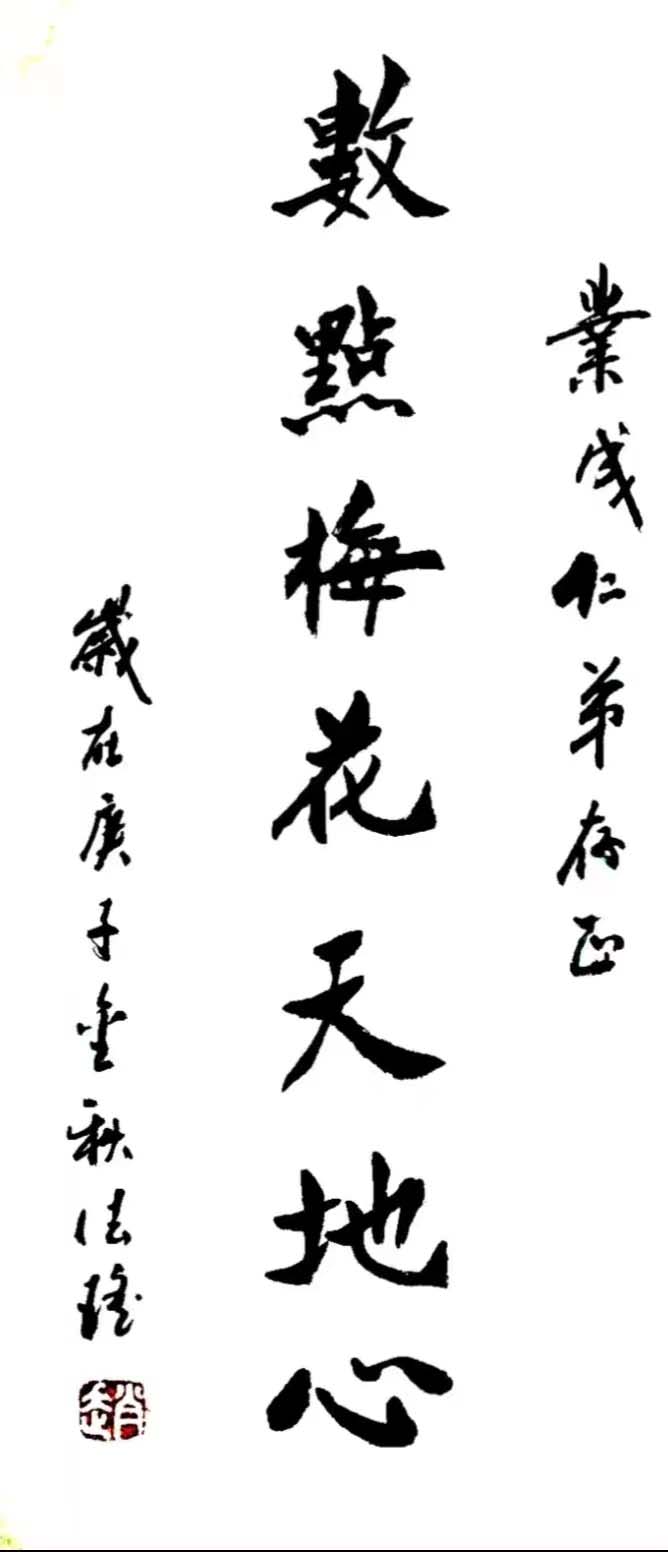 業成仁弟存正
數點梅花天地心
歲在庚子金秋法瑤
趙